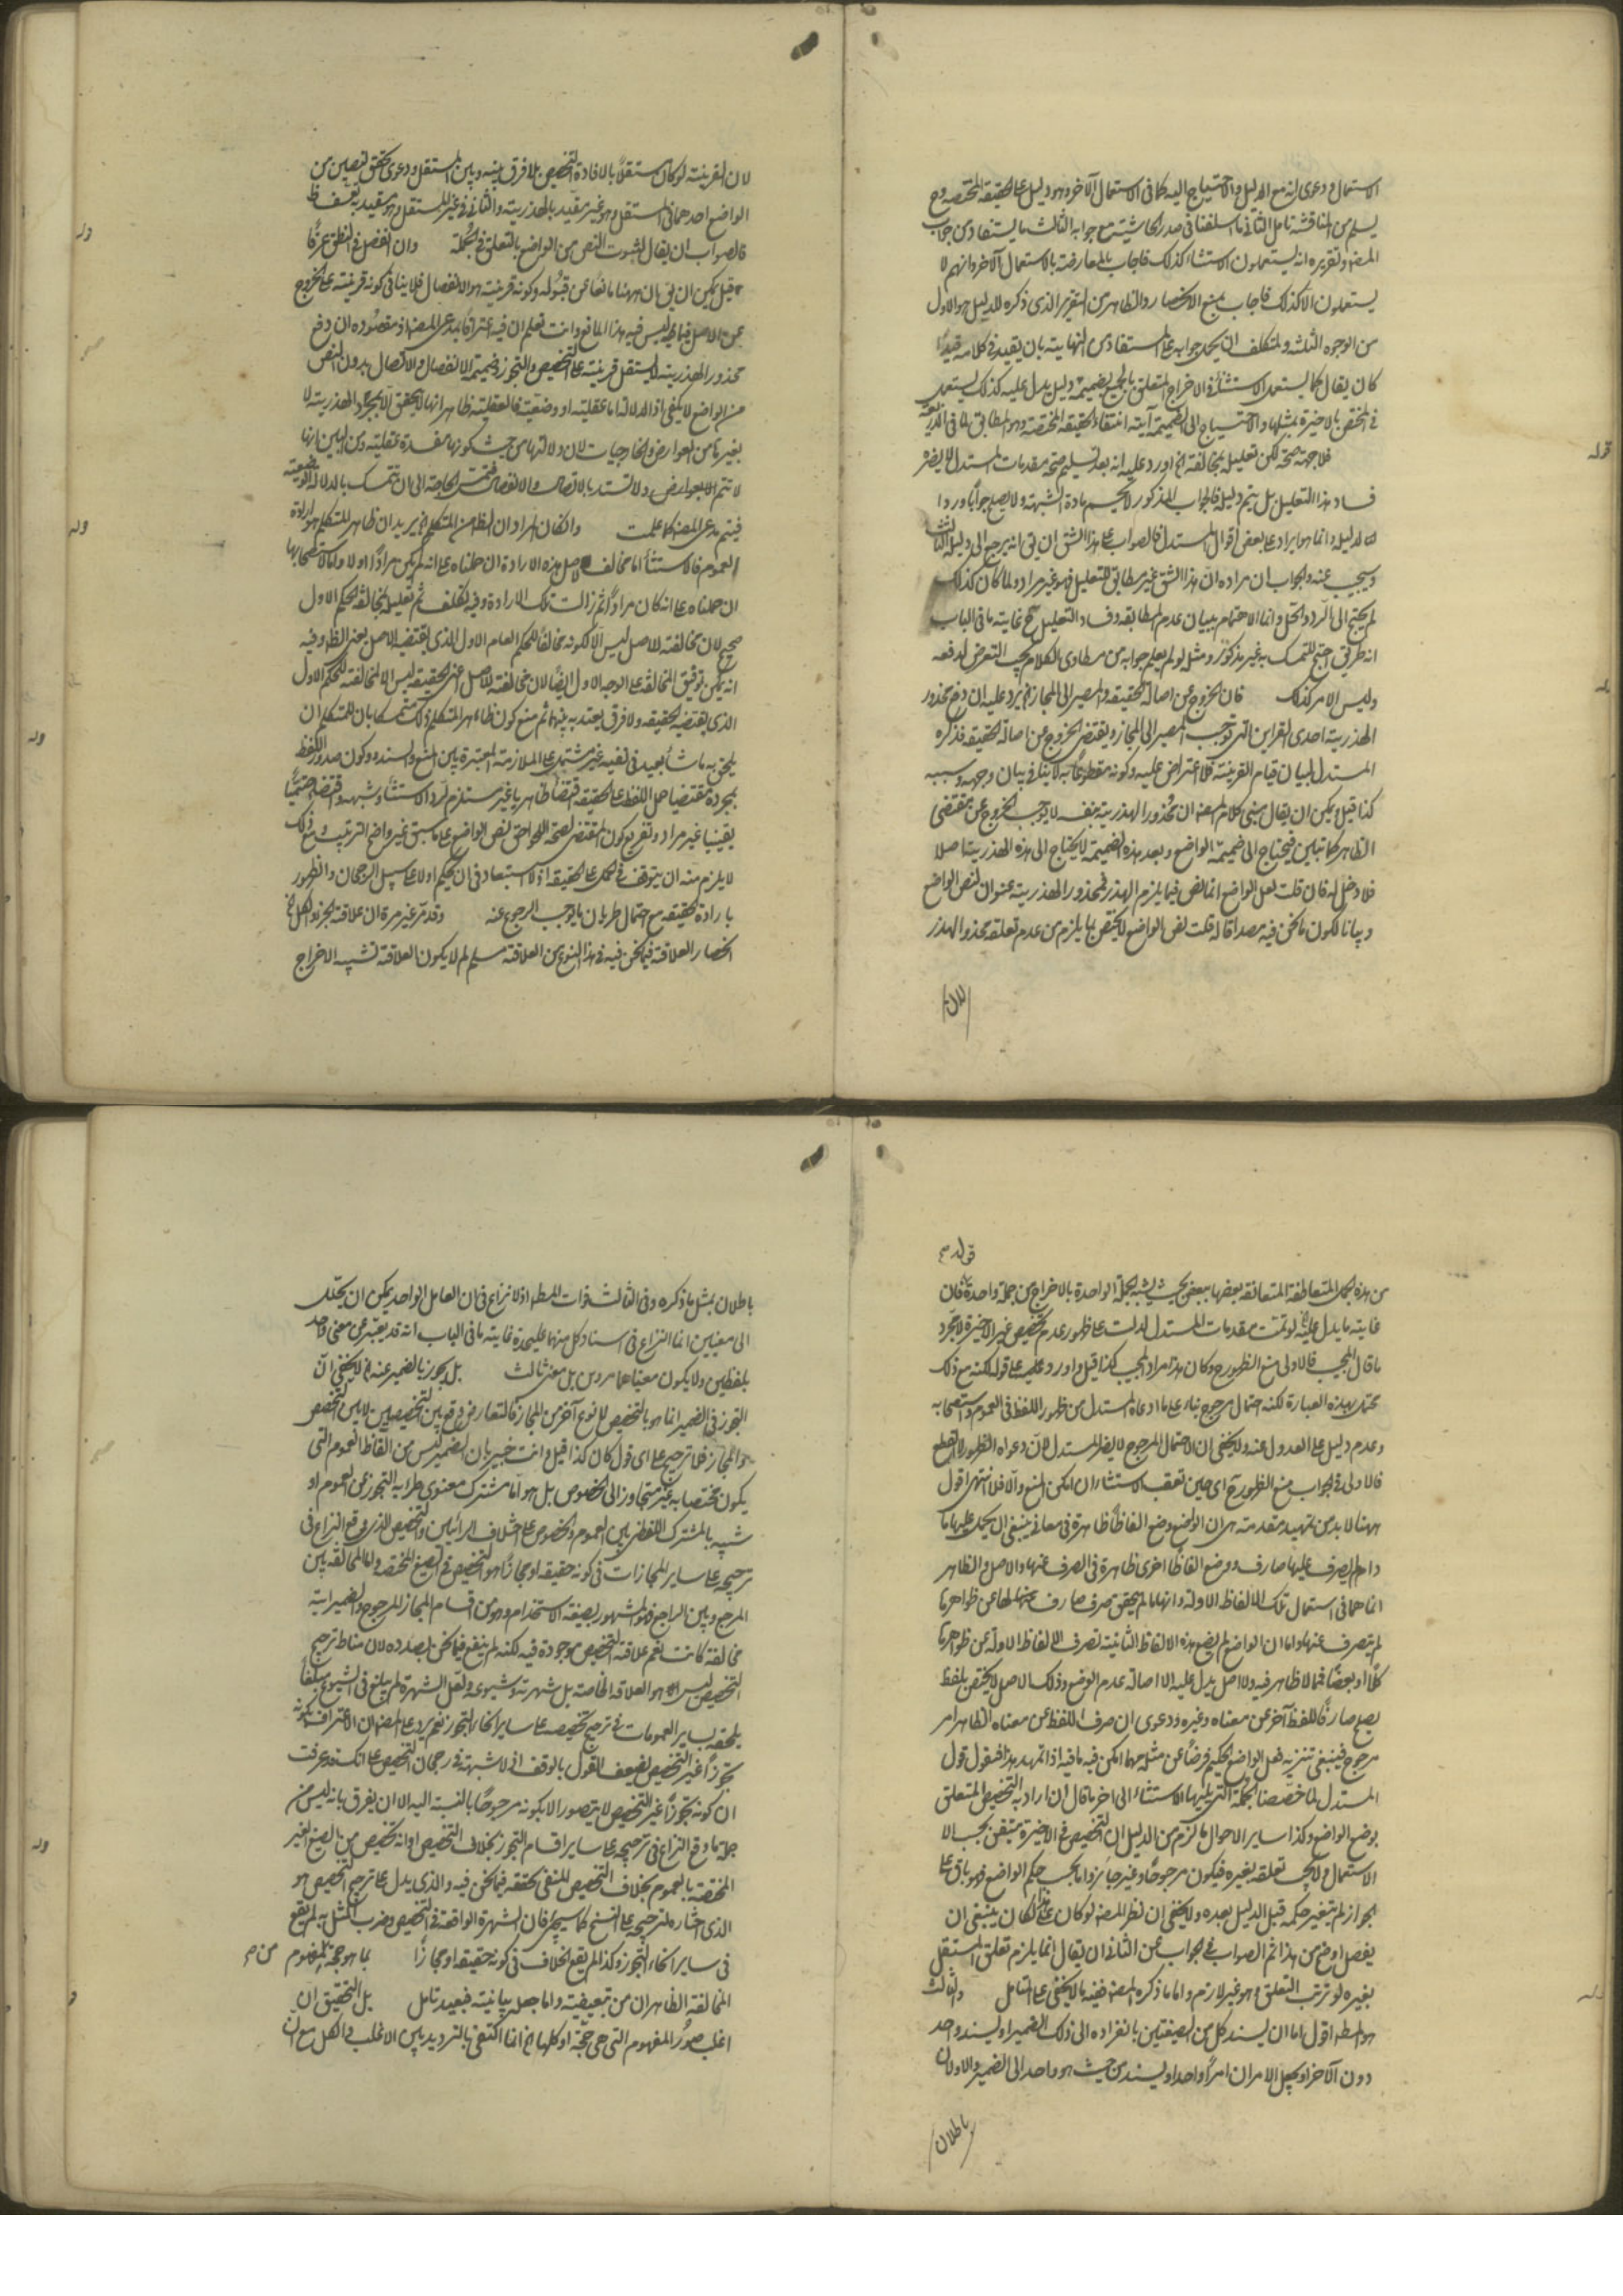 الاستعمال ودعوى انه مع الدليل والاحتياج اليه كما فى الاستعمال الآخر وهو دليل على الحقيقة المختصة وح
يسلم من المناقشة تامل الثانى ما اسلفنا فى صدر الحاشية مع جوابه الثالث ما يستفاد من جواب
المصنف وتقريره انه يستعملون الاستثناء كذلك فاجاب بالمعارضة بالاستعمال الآخر وانهم لا
يستعملون الا كذلك فاجاب بمنع الانحصار والظاهر من التقرير الذى ذكره للدليل هو الاول
من الوجوه الثلثة والمتكلف ان يحمل جوابه على المستفاد من النهاية بان يقيد فى كلامه قيدا
كان يقال كما يستعمل الاستثناء فى الاخراج المتعلق بالجميع بضميمة دليل يدل عليه كذلك يستعمل
فى المختص بالاخيرة بمثلها والاحتياج الى الضميمة آية انتفاء الحقيقة المختصة وهو المطابق لما فى الذريعة
فلا جهة صحة لكن تعليله بمخالفته الخ اورد عليه انه بعد تسليم صحة مقدمات المستدل لا يضره
فساد هذا التعليل بل يتم دليله فالجواب المذكور لا يحسم مادة الشبهة ولا يصلح جوابا وردا
لدليله وانما هو ايراد على بعض اقوال المستدل فالصواب على هذا الشق ان يق انه يرجع الى دليله الثالث
ويجيب عنه والجواب ان مراده ان هذا الشق غير مطابق للتعليل فهو غير مراد ولما كان كذلك
لم يحتج الى الرد والحل وانما الاهتمام ببيان عدم المطابقة وفساد التعليل ح غاية ما فى الباب
انه طريق احتج للتمسك به غير مذكور ومثل لو لم يعلم جوابه من مطاوى الكلام يجب التعرض لدفعه
وليس الامر كذلك فان الخروج عن اصالة الحقيقة والمصير الى المجاز الخ يرد عليه ان دفع محذور
الهذرية احدى القراين التى توجب المصير الى المجاز ويقتضى الخروج عن اصالة الحقيقة فذكره
المستدل لبيان قيام القرينة فلا اعتراض عليه وكونه مقطوعا به لا ينافى بيان وجهه وسببه
كذا قيل ويمكن ان يقال مبنى كلام المصنف ان محذور الهذرية بنفسه لا يوجب الخروج عن مقتضى
الظاهر كما تبين فيحتاج الى ضميمة الواضع وبعد هذه الضميمة لا يحتاج الى هذه الهذرية اصلا
فلا دخل له فان قلت لعل الواضع انما نص فيما يلزم الهذر فمحذور الهذرية عنوان لنص الواضع
وبيانا لكون ما نحن فيه مصداقا له قلت نص الواضع لا يختص بما يلزم من عدم تعلقه محذور الهذر
لان
لان القرينة لو كان مستقلا بالافادة التخصيص بلا فرق بينه وبين المستقل ودعوى تحقق نصين من
الواضع احدهما فى المستقل وهو غير مقيد بالهذرية والثانى فى غير المستقل وهو مقيد به تعسف ظ
فالصواب ان يقال لثبوت النص من الواضع بالتعلق فى الجملة وان انفصل فى النطق عرفا
قيل يمكن ان يق ان ههنا مانعا عن قبوله وكونه قرينة هو الانفصال فلا ينافى كونه قرينة على الخروج
عن الاصل فيما ليس فيه هذا المانع وانت تعلم ان فيه اعترافا بمدعى المصنف اذ مقصوده ان دفع
محذور الهذرية لا يستقل قرينة على التخصيص والتجوز وضميمة الانفصال والاتصال بدون النص
من الواضع لا يكفى اذ الدلالة اما عقلية او وضعية فالعقلية ظاهر انها لا يتحقق الا بمجرد الهذرية لا
بغيرها من العوارض والخارجيات لان دلالتها من حيث كونها مفسدة عقلية ومن البين انها
لا تتم الا بعوارض ولا تستند بالاتصال والانفصال فتمس الحاجة الى ان يتمسك بالدلالة الوضعية
فيتم مدعى المصنف كما علمت وان كان المراد ان الظاهر من المتكلم الخ يريد ان ظاهر المتكلم هو ارادة
العموم فالاستثناء اما مخالف لاصل هذه الارادة ان حملناه على انه لم يكن مرادا اولا واما لاستصحابها
ان حملناه على انه كان مرادا ثم زالت تلك الارادة وفيه تكلف ثم تعليله بمخالفة الحكم الاول
صحيح لان مخالفته للاصل ليس الا لكونه مخالفا للحكم العام الاول الذى يقتضيه الاصل بمعنى الظ وفيه
انه يمكن توفيق المخالفة على الوجه الاول ايضا لان مخالفته للاصل اعنى الحقيقة ليس الا لمخالفته للحكم الاول
الذى يقتضيه الحقيقة ولا فرق يعتد به بينهما ثم منع كون ظاهر المتكلم ذلك متمسكا بان للمتكلم ان
يلحق به ما شاء بعيد فى نفسه غير مشتمل على الملازمة المعتبرة بين المنع والسند وكون صدور اللفظ
بمجرده مقتضيا حمل اللفظ على الحقيقة اقتضاء ظاهريا غير مستلزم لرد الاستثناء وشبهه واقتضاء حتميا
يقينيا غير مراد وتفريع كون المقتضى لصحة اللواحق نص الواضع على ما سبق غير واضح الترتيب ومع ذلك
لا يلزم منه ان يتوقف فى الحمل على الحقيقة اذ لا استبعاد فى ان يحكم اولا على سبيل الرجحان والظهور
بارادة الحقيقة مع احتمال طريان ما يوجب الرجوع عنه وقد مر غير مرة ان علاقة الجزء والكل الخ
انحصار العلاقة فيما نحن فيه فى هذا النوع من العلاقة مسلم لم لا يكون العلاقة تشبيه الاخراج
قوله
من هذه الجمل المتعاطفة المتعانقة بعضها ببعض بحيث يشبه الجملة الواحدة بالاخراج من جملة واحدة فان
غاية ما يدل عليه لو تمت مقدمات المستدل لدلت على ظهور عدم تخصيص غير الاخيرة لا بمجرد
ما قال المجيب فالاولى منع الظهور ح وكان هذا مراد المجيب كذا قيل واورد عليه على قوله لكنه مع ذلك
محتمل بهذه العبارة لكنه احتمال مرجوح بناء على ما ادعاه المستدل من ظهور اللفظ فى العموم واستصحابه
وعدم دليل على العدول عنه ولا يخفى ان الاحتمال المرجوح لا يضر المستدل لان دعواه الظهور لا القطع
فالاولى فى الجواب منع الظهور ح اى حين تعقب الاستثناء ان امكن المنع والا فلا انتهى اقول
ههنا لا بد من تمهيد مقدمة هى ان الواضع وضع الفاظا ظاهرة فى معانى ينبغى ان يحمل عليها ما
دام لم يصرف عليها صارف ووضع الفاظا اخرى ظاهرة فى الصرف عنها والاصل والظاهر
انما هما فى استعمال تلك الالفاظ الاولة وانها ما لم يتحقق صرف صارف عنها لها عن ظواهرها
لم يتصرف عنها واما ان الواضع لم يضع هذه الالفاظ الثانية لصرف الالفاظ الاولة عن ظواهرها
كلا او بعضا فمما لا ظاهر فيه ولا اصل يدل عليه الا اصالة عدم الوضع وذلك الاصل لا يختص بلفظ
يصلح صارفا للفظ آخر عن معناه وغيره ودعوى ان صرف اللفظ عن معناه الظاهر امر
مرجوح فينبغى تنزيه فعل الواضع الحكيم فرضا عن مثله مهما امكن فيه ما فيه اذا تمهد هذا فنقول قول
المستدل لما خصصنا الجملة التى يليها الاستثناء الى آخر ما قال ان اراد به التخصيص المتعلق
بوضع الواضع وكذا ساير الاحوال ما لزم من الدليل ان التخصيص فى الاخيرة متيقن بحسب الا
الاستعمال ولا يجب تعلقه بغيره فيكون مرجوحا وغير جائز واما بحسب حكم الواضع فهو باق على
الجواز لم يتغير حكمه قبل الدليل بعده ولا يخفى ان نظر المصنف لو كان على هذا لكان ينبغى ان
يفصل اوضح من هذا ثم الصواب فى الجواب عن الثانى ان يقال انما يلزم تعلق المستقل
بغيره لو ترتب التعلق وهو غير لازم واما ما ذكره المصنف ففيه ما لا يخفى على المتامل والثالث
هو المط اقول اما ان يسند كل من الصيغتين بانفراده الى ذلك الضمير او يسند واحد
دون الآخر او يجعل الامران امرا واحدا ويسند من حيث هو واحد الى الضمير والاولان
باطلان
باطلان بمثل ما ذكره وفى الثالث فوات المط اذ لا نزاع فى ان العامل الواحد يمكن ان يحلل
الى معنيين انما النزاع فى اسناد كل منهما عليحدة غاية ما فى الباب انه قد يعبر عن معنى واحد
بلفظين ولا يكون معناهما مرادين بل معنى ثالث بل يجوز بالضمير عنه الخ لا يخفى ان
التجوز فى الضمير انما هو بالتخصيص لا نوع آخر من المجاز فالتعارض وقع بين التخصيصين لا بين التخصيص
والمجاز فلا ترجيح على اى قول كان كذا قيل وانت خبير بان الضمير ليس من الفاظ العموم التى
يكون مختصا به غير متجاوز الى الخصوص بل هو اما مشترك معنوى طرء به التجوز عن العموم او
شبيه بالمشترك اللفظى بين العموم والخصوص على اختلاف الرائيين والتخصيص الذى وقع النزاع فى
ترجيحه على ساير المجازات فى كونه حقيقة او مجازا هو التخصيص فى الصيغ المختصة واما المخالفة بين
المرجع وبين الراجع فهو المشهور بصنعة الاستخدام وهو من اقسام المجاز المرجوح والضمير اية
مخالفة كانت نعم علاقة التخصيص موجودة فيه لكنه لم ينفع فيما نحن بصدده لان مناط ترجيح
التخصيص ليس هو العلاقة الخاصة بل شهرته وشيوعه ولعل الشهرة لم يبلغ فى الشيوع مبلغا
يلحقه بساير العمومات فى ترجيح تخصيصه على ساير انحاء التجوز نعم يرد على المصنف ان الاعتراف بكونه
تجوزا غير التخصيص لضعف القول بالوقف اذ لا شبهة فى رجحان التخصيص على انك قد عرفت
ان كونه تجوزا غير التخصيص لا يتصور الا بكونه مرجوحا بالنسبة اليه الا ان يفرق بانه ليس من
جملة ما وقع النزاع فى ترجيحه على ساير اقسام التجوز بخلاف التخصيص او انه تخصيص من الصيغ الغير
المختصة بالعموم بخلاف التخصيص المنفى تحققه فيما نحن فيه والذى يدل على ترجيح التخصيص هو
الذى اختاره لترجيحه على النسخ كما سيجئ فان الشهرة الواقعة فى التخصيص وضرب المثل به لم يقع
فى ساير انحاء التجوز وكذا لم يقع الخلاف فى كونه حقيقة او مجازا بما هو حجة المفهوم من
المخالفة الظاهر ان من تبعيضية واما جعله بيانية فبعيد تامل بل التحقيق ان
اغلب صور المفهوم التى هى حجة او كلها الخ انما اكتفى بالترديد بين الاغلب والكل مع ان
قوله